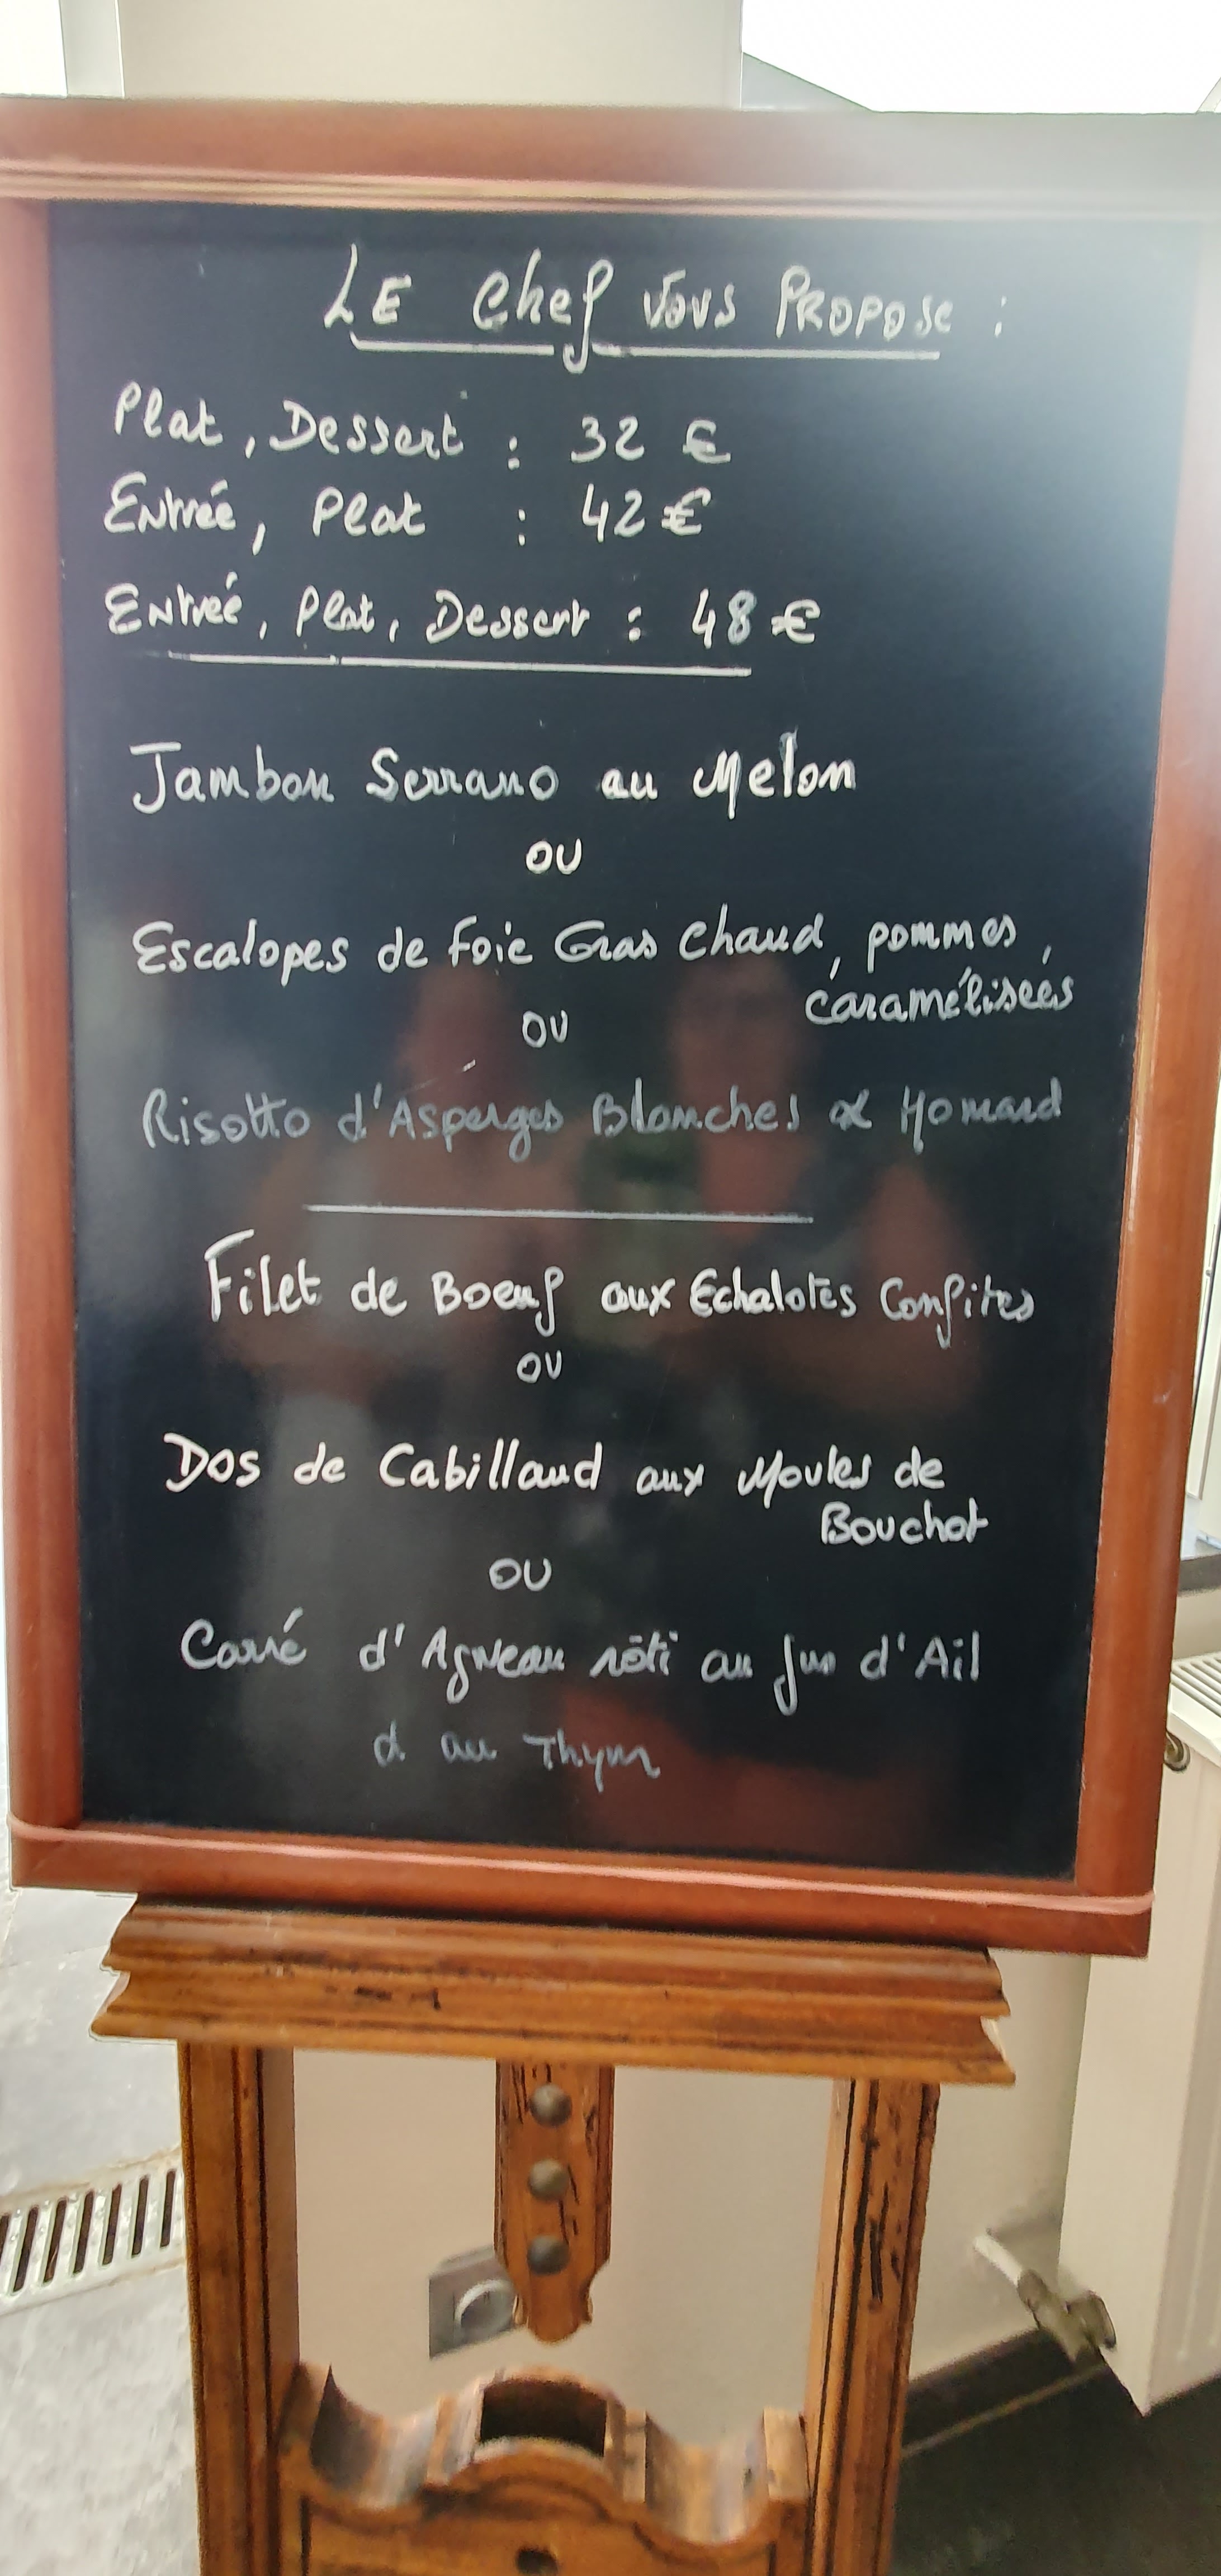 LE Chef VOUS PROPOSE :
Plat, Dessert : 32 €
Entrée, Plat : 42 €
Entrée, Plat, Dessert : 48 €
Jambon Serrano au Melon
OU
Escalopes de Foie Gras Chaud, pommes,
caramélisées
OU
Risotto d'Asperges Blanches & Homard
Filet de Boeuf aux Echalotes Confites
OU
Dos de Cabillaud aux Moules de
Bouchot
OU
Carré d'Agneau rôti au Jus d'Ail
& au Thym